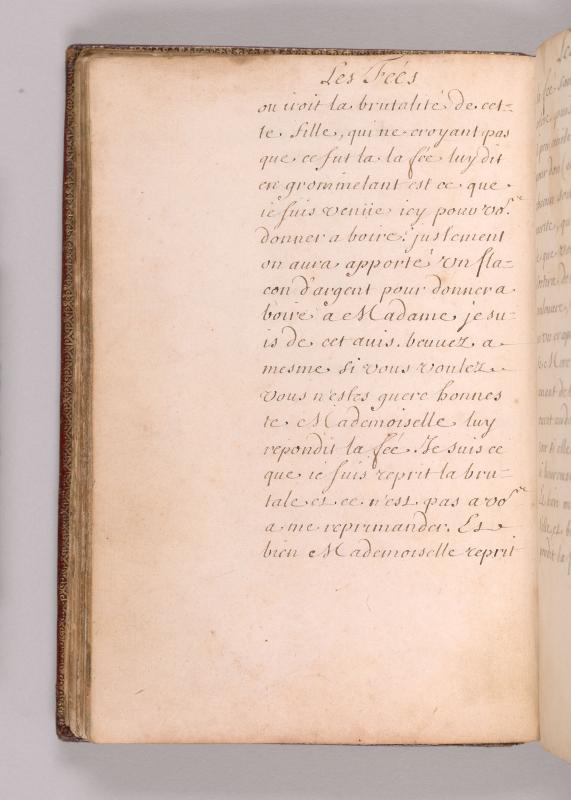 Les Feés
ou iroit la brutalité de cet-
te fille, qui ne croyant pas
que ce fut la la fée luy dit
en grommelant est ce que
ie suis venüe icy pour vo.
donner a boire? justement
on aura apporté un fla-
con d'argent pour donner a
boire a Madame, je su-
is de cet avis. beuvez a
mesme si vous voulez
vous n'estes guere honnes
te Mademoiselle luy
repondit la fée. Je suis ce
que ie suis reprit la bru-
tale et ce n'est pas a vo.
a me reprimander. Et
bien Mademoiselle reprit